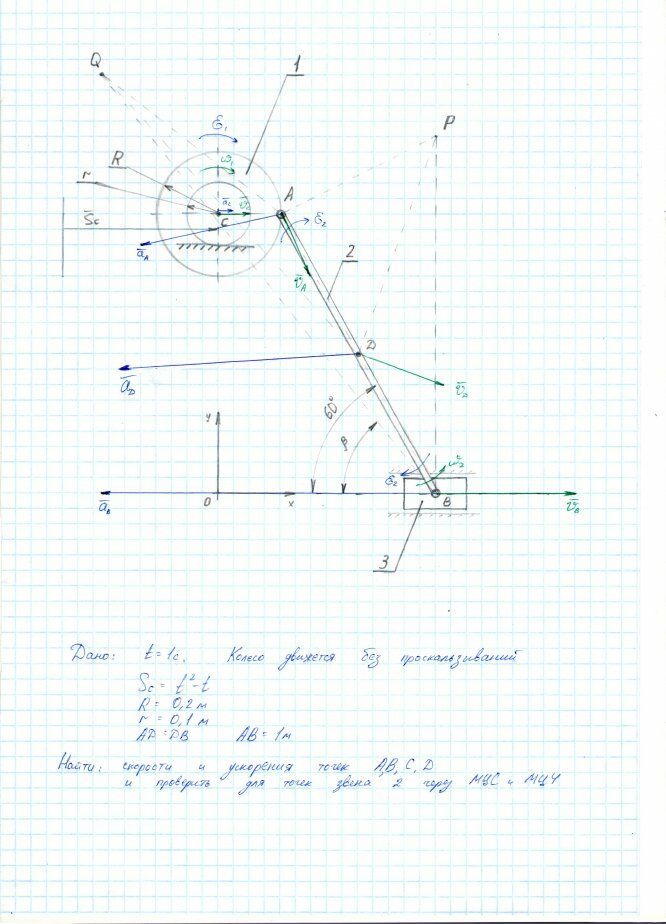 Q
1
ε₁
P
R
ω₁
r
A
S̄c
āc
v̄c
C
ε₂
āA
v̄A
2
D
āD
60°
v̄D
β
y
ε₂
ω₂
āB
O
x
B
v̄B
3
Дано: t=1с. Колесо движется без проскальзываний
Sc = t²-t
R = 0,2м
r = 0,1м
AD=DB AB=1м
Найти: скорости и ускорения точек A,B,C,D
и проверить для точек звена 2 через МЦС и МЦУ